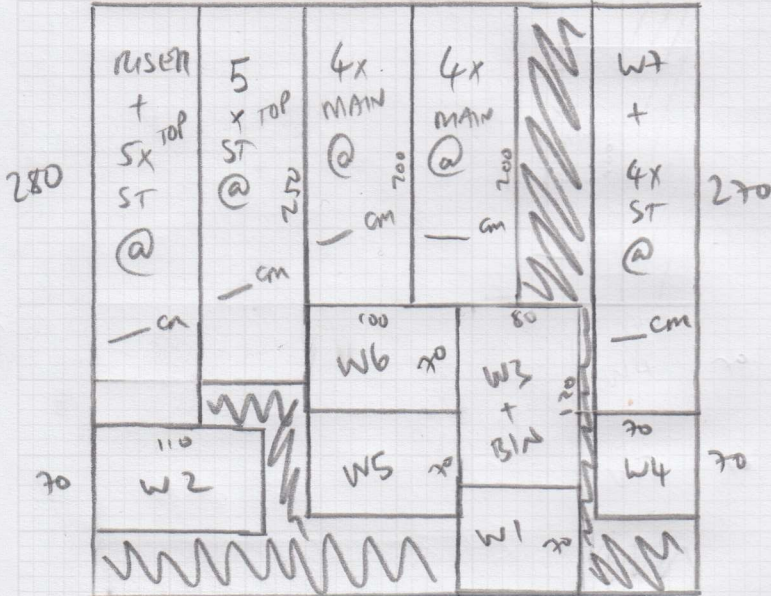 RISER
+
5x TOP
ST
@
— cm
280
5
x TOP
ST
@
250
— cm
4x
MAIN
@
200
— cm
4x
MAIN
@
200
— cm
W7
+
4x
ST
@
— cm
270
100
W6 70
80
W3
+
BIN
120
110
W2
70
W5 70
W1 70
70
W4
70